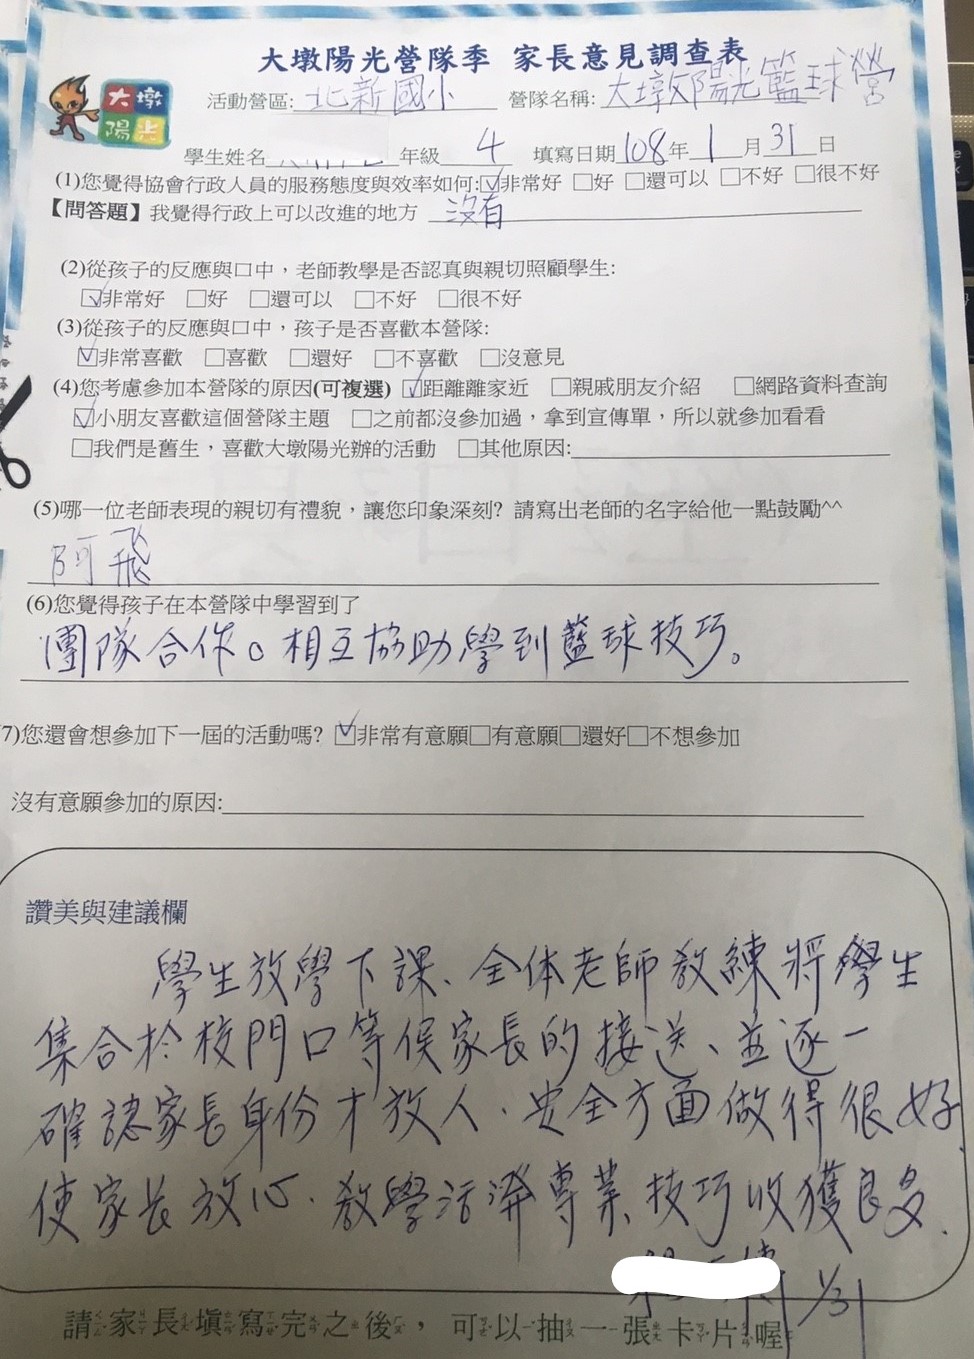 大墩陽光營隊季 家長意見調查表
大墩
陽光
活動營區: 北新國小 營隊名稱: 大墩陽光籃球營
學生姓名 年級 4 填寫日期 108年 1 月 31 日
(1)您覺得協會行政人員的服務態度與效率如何:☑非常好 □好 □還可以 □不好 □很不好
【問答題】我覺得行政上可以改進的地方 沒有
(2)從孩子的反應與口中，老師教學是否認真與親切照顧學生:
☑非常好 □好 □還可以 □不好 □很不好
(3)從孩子的反應與口中，孩子是否喜歡本營隊:
☑非常喜歡 □喜歡 □還好 □不喜歡 □沒意見
(4)您考慮參加本營隊的原因(可複選) ☑距離離家近 □親戚朋友介紹 □網路資料查詢
☑小朋友喜歡這個營隊主題 □之前都沒參加過，拿到宣傳單，所以就參加看看
□我們是舊生，喜歡大墩陽光辦的活動 □其他原因:
(5)哪一位老師表現的親切有禮貌，讓您印象深刻? 請寫出老師的名字給他一點鼓勵^^
阿飛
(6)您覺得孩子在本營隊中學習到了
團隊合作。相互協助學到籃球技巧。
7)您還會想參加下一屆的活動嗎? ☑非常有意願□有意願□還好□不想參加
沒有意願參加的原因:
讚美與建議欄
學生放學下課、全体老師教練將學生
集合於校門口等候家長的接送、並逐一
確認家長身份才放人、安全方面做得很好
使家長放心、教學活潑專業、技巧收獲良多.
1/31
請家長填寫完之後，可以抽一張卡片喔